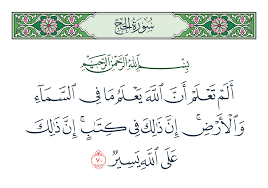 سُورَةُ الحَجِّ
بِسْمِ اللَّهِ الرَّحْمَٰنِ الرَّحِيمِ
أَلَمْ تَعْلَمْ أَنَّ اللَّهَ يَعْلَمُ مَا فِي السَّمَاءِ
وَالْأَرْضِ ۗ إِنَّ ذَٰلِكَ فِي كِتَابٍ ۚ إِنَّ ذَٰلِكَ
عَلَى اللَّهِ يَسِيرٌ ٧٠